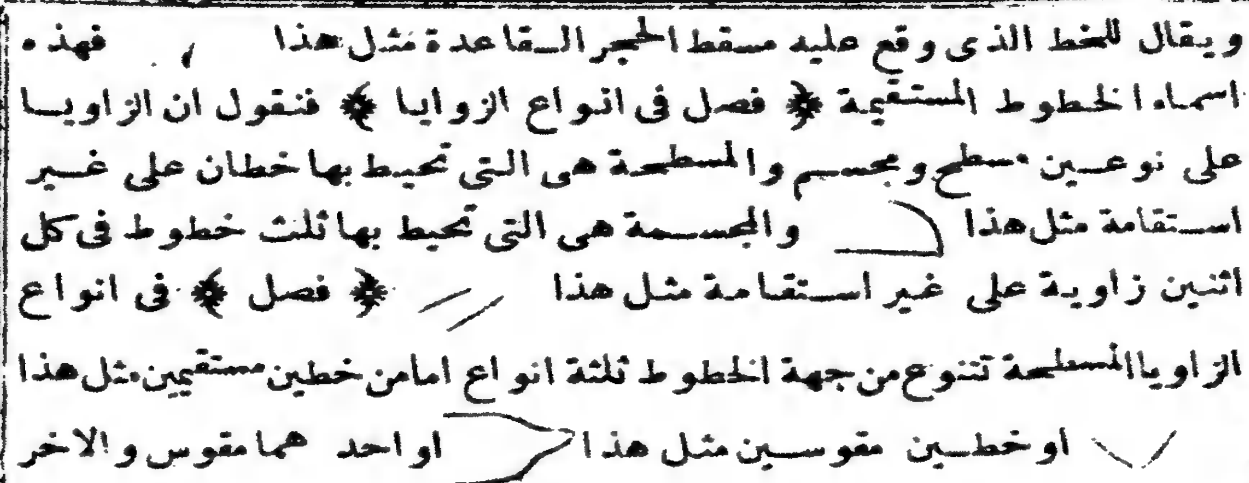 ويقال للخط الذى وقع عليه مسقط الحجر القاعدة مثل هذا فهذه
اسماء الخطوط المستقيمة ﴿ فصل فى انواع الزوايا ﴾ فنقول ان الزاويا
على نوعين مسطح ومجسم والمسطحة هى التى تحيط بها خطان على غير
استقامة مثل هذا والمجسمة هى التى تحيط بها ثلث خطوط فى كل
اثنين زاوية على غير استقامة مثل هذا ﴿ فصل ﴾ فى انواع
الزاويا المسطحة تتنوع من جهة الخطوط ثلثة انواع اما من خطين مستقيمين مثل هذا
او خطين مقوسين مثل هذا او احد هما مقوس والاخر